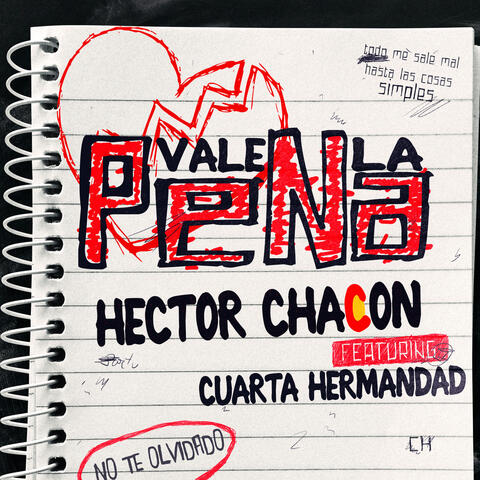 todo me sale mal
hasta las cosas
simples
VALE LA
PeNa
HECTOR CHACON
FEATURING
CUARTA HERMANDAD
CH
NO TE OLVIDADO